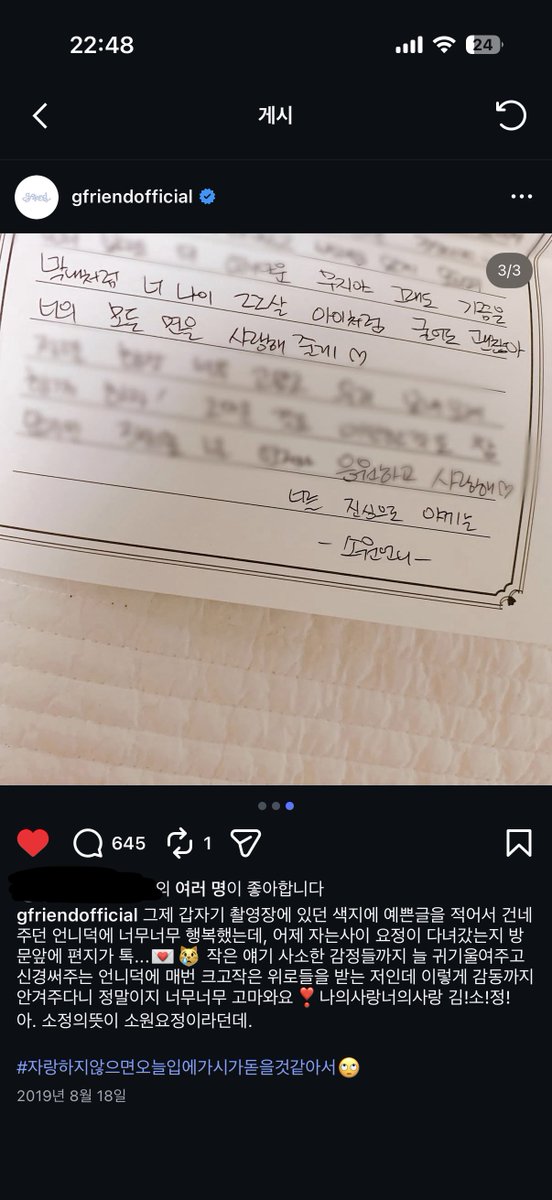 22:48
24
게시
gfriendofficial
3/3
운 무지야 그래도 기쁨을
막내처럼 너 나이 22살 아이처럼 굴어도 괜찮아
너의 모든 면을 사랑해 줄게♡
응원하고 사랑해♡
너를 진심으로 아끼는
-소원언니-
645
1
의 여러 명이 좋아합니다
gfriendofficial 그제 갑자기 촬영장에 있던 색지에 예쁜글을 적어서 건네
주던 언니덕에 너무너무 행복했는데, 어제 자는사이 요정이 다녀갔는지 방
문앞에 편지가 톡...💌😿 작은 얘기 사소한 감정들까지 늘 귀기울여주고
신경써주는 언니덕에 매번 크고작은 위로들을 받는 저인데 이렇게 감동까지
안겨주다니 정말이지 너무너무 고마와요❣️나의사랑너의사랑 김!소!정!
아. 소정의뜻이 소원요정이라던데.
#자랑하지않으면오늘입에가시가돋을것같아서🙄
2019년 8월 18일